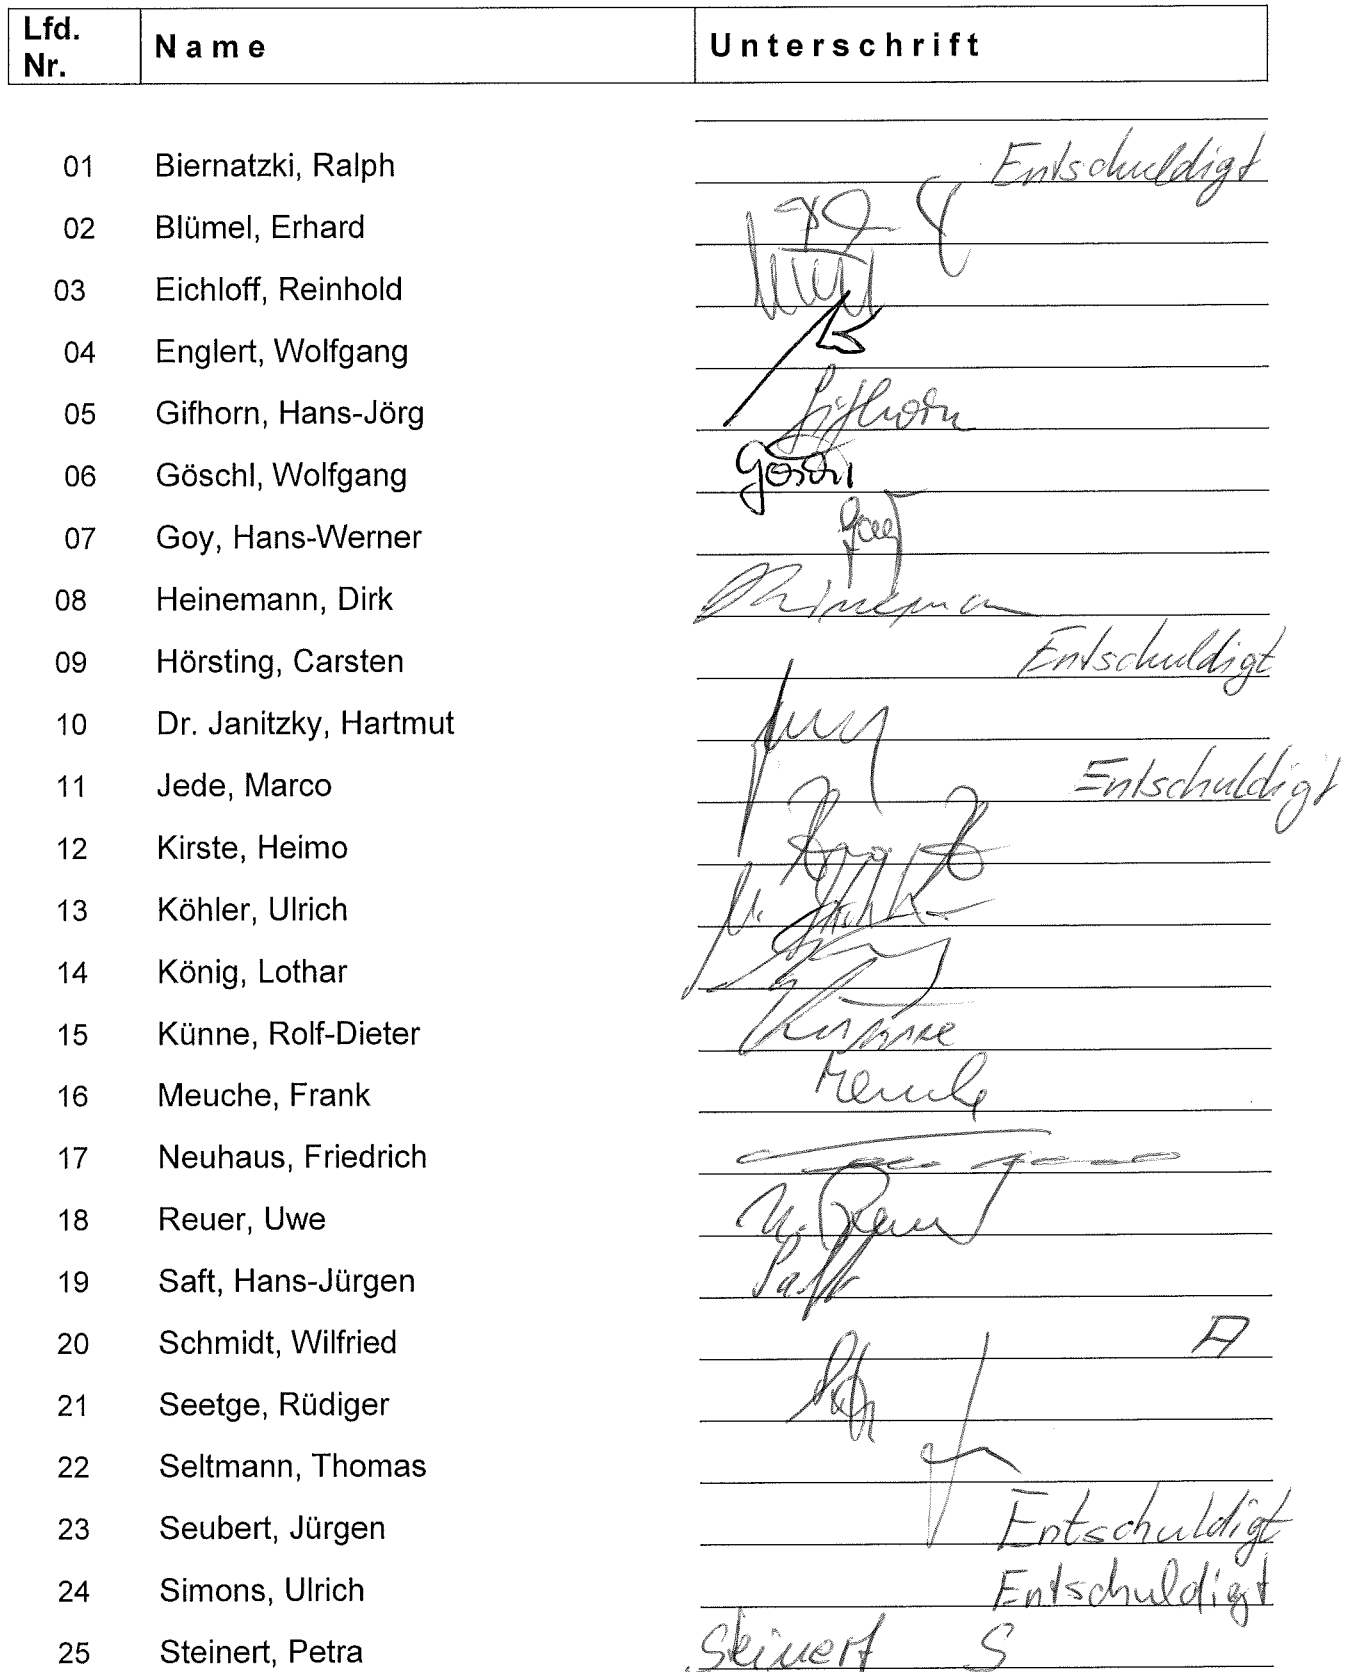 Lfd. Nr. Name Unterschrift
01 Biernatzki, Ralph Entschuldigt
02 Blümel, Erhard
03 Eichloff, Reinhold
04 Englert, Wolfgang
05 Gifhorn, Hans-Jörg Gifhorn
06 Göschl, Wolfgang Göschl
07 Goy, Hans-Werner Goy
08 Heinemann, Dirk Heinemann
09 Hörsting, Carsten Entschuldigt
10 Dr. Janitzky, Hartmut
11 Jede, Marco Entschuldigt
12 Kirste, Heimo
13 Köhler, Ulrich
14 König, Lothar
15 Künne, Rolf-Dieter Künne
16 Meuche, Frank Meuche
17 Neuhaus, Friedrich
18 Reuer, Uwe U. Reuer
19 Saft, Hans-Jürgen Saft
20 Schmidt, Wilfried A
21 Seetge, Rüdiger
22 Seltmann, Thomas
23 Seubert, Jürgen Entschuldigt
24 Simons, Ulrich Entschuldigt
25 Steinert, Petra Steinert S